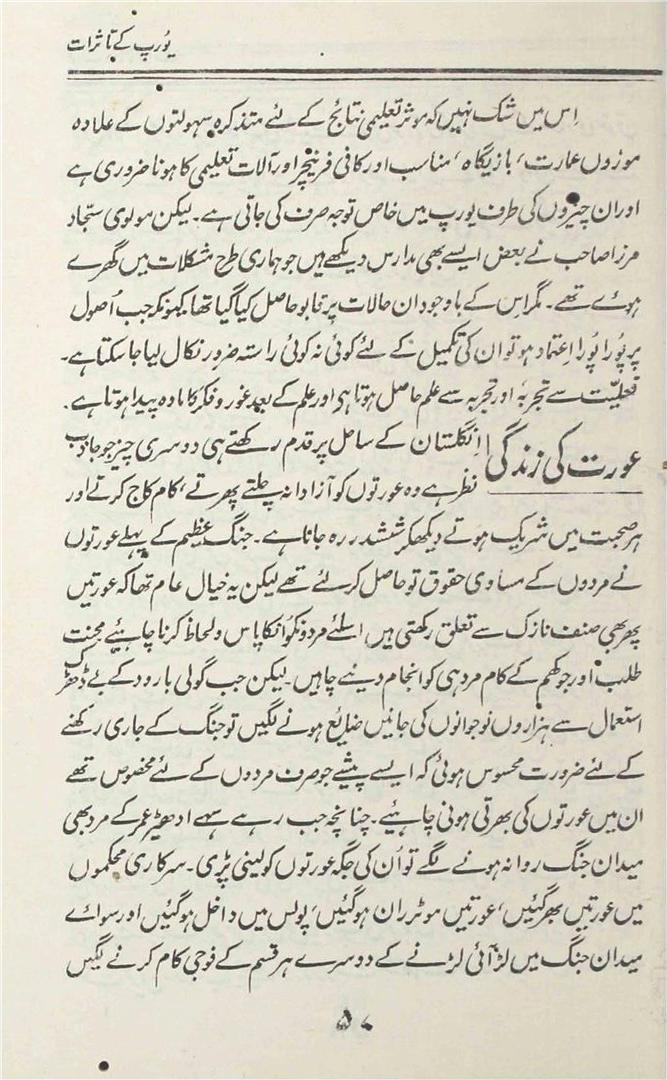 یُورپ کے تاثرات
اِس میں شک نہیں کہ موثر تعلیمی نتائج کے لئے متذکرہ سہولتوں کے علاوہ
موزوں عمارت، بازیگاہ، مناسب اور کافی فرنیچر اور آلات تعلیمی کا ہونا ضروری ہے
اور ان چیزوں کی طرف یورپ میں خاص توجہ صرف کی جاتی ہے۔ لیکن مولوی سجّاد
مرزا صاحب نے بعض ایسے بھی مدارس دیکھے ہیں جو ہماری طرح مشکلات میں گھرے
ہوئے تھے۔ مگر اس کے باوجود ان حالات پر قابو حاصل کیا گیا تھا کیونکہ جب اُصول
پر پُورا پُورا اعتماد ہو تو ان کی تکمیل کے لئے کوئی نہ کوئی راستہ ضرور نکال لیا جا سکتا ہے۔
فعلیّت سے تجربہ اور تجربہ سے علم حاصل ہوتا ہی اور علم کے بعد غور و فکر کا مادہ پیدا ہوتا ہے۔
عورت کی زندگی
اِنگلستان کے ساحل پر قدم رکھتے ہی دوسری چیز جو جاذب
نظر ہے وہ عورتوں کو آزادانہ چلتے پھرتے، کام کاج کرتے اور
ہر صحبت میں شریک ہوتے دیکھکر ششدر رہ جانا ہے۔ جنگ عظیم کے پہلے عورتوں
نے مردوں کے مساوی حقوق تو حاصل کر لئے تھے لیکن یہ خیال عام تھا کہ عورتیں
پھر بھی صنف نازک سے تعلق رکھتی ہیں اسلئے مردونکو انکا پاس و لحاظ کرنا چاہیئے محنت
طلب اور جوکھم کے کام مرد ہی کو انجام دینے چاہیں۔ لیکن جب گولی بارود کے بے دھڑک
استعمال سے ہزاروں نوجوانوں کی جانیں ضایع ہونے لگیں تو جنگ کے جاری رکھنے
کے لئے ضرورت محسوس ہوئی کہ ایسے پیشے جو صرف مردوں کے لئے مخصوص تھے
ان میں عورتوں کی بھرتی ہونی چاہیئے۔ چنانچہ جب رہے سہے ادھیڑ عمر کے مرد بھی
میدان جنگ روانہ ہونے لگے تو اُن کی جگہ عورتوں کو لینی پڑی۔ سرکاری محکموں
میں عورتیں بھر گئیں، عورتیں موٹر ران ہو گئیں، پولس میں داخل ہو گئیں اور سوائے
میدان جنگ میں لڑآئی لڑنے کے دوسرے ہر قسم کے فوجی کام کرنے لگیں
۵۷